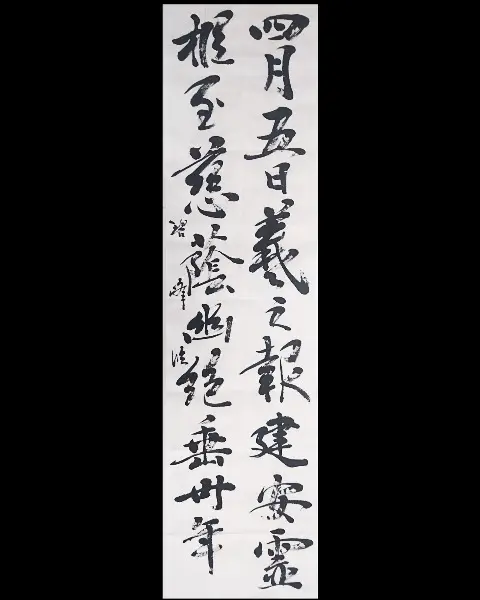 四月五日羲之報建安霊
柩至慈蔭幽絶垂卅年
峰臨